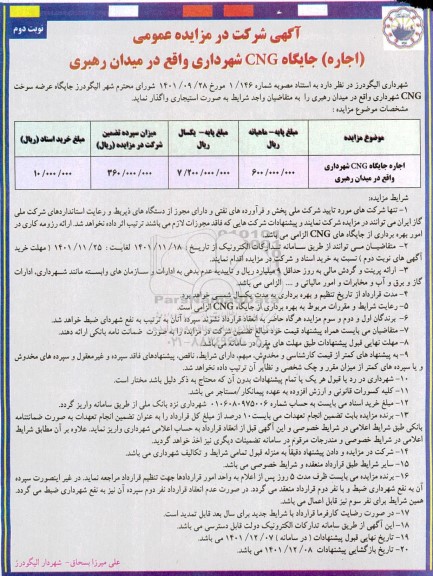 نوبت دوم
آگهی شرکت در مزایده عمومی
(اجاره) جایگاه CNG شهرداری واقع در میدان رهبری
شهرداری الیگودرز در نظر دارد به استناد مصوبه شماره ۱/۱۴۶ مورخ ۱۴۰۱/۰۹/۲۸ شورای محترم شهر الیگودرز جایگاه عرضه سوخت
CNG شهرداری واقع در میدان رهبری را به متقاضیان واجد شرایط به صورت استیجاری واگذار نماید.
مشخصات موضوع مزایده :
موضوع مزایده
مبلغ پایه- ماهیانه ریال
مبلغ پایه- یکسال ریال
میزان سپرده تضمین شرکت در مزایده (ریال)
مبلغ خرید اسناد (ریال)
اجاره جایگاه CNG شهرداری واقع در میدان رهبری
۶۰۰/۰۰۰/۰۰۰
۷/۲۰۰/۰۰۰/۰۰۰
۳۶۰/۰۰۰/۰۰۰
۱۰/۰۰۰/۰۰۰
شرایط مزایده:
۱- تنها شرکت های مورد تایید شرکت ملی پخش و فرآورده های نفتی و دارای مجوز از دستگاه های ذیربط و رعایت استانداردهای شرکت ملی
گاز ایران می توانند در مزایده شرکت نمایند و پیشنهادات شرکت هایی که فاقد مجوزات لازم می باشند ترتیب اثر داده نخواهد شد. ارائه رزومه کاری در
امور بهره برداری از جایگاه های CNG الزامی می باشد.
۲- متقاضیان می توانند از طریق سامانه تدارکات الکترونیک از تاریخ : ۱۴۰۱/۱۱/۱۸ لغایت : ۱۴۰۱/۱۱/۲۵ ( مهلت خرید
آگهی های نوبت دوم ) نسبت به خرید اسناد و شرکت در مزایده اقدام نمایند.
۳- ارائه پرینت و گردش مالی به روز حداقل ۹ میلیارد ریال و تاییدیه عدم بدهی به ادارات و سازمان های وابسته مانند شهرداری، ادارات
گاز و برق و آب و مخابرات و امور مالیاتی و ... الزامی می باشد.
۴- مدت قرارداد از تاریخ تنظیم و بهره برداری به مدت یکسال شمسی خواهد بود
۵- رعایت شرایط و مقررات مربوط به بهره برداری از جایگاه CNG الزامی است.
۶- برندگان اول و دوم و سوم مزایده هرگاه حاضر به انعقاد قرارداد نشوند سپرده آنان به ترتیب به نفع شهرداری ضبط خواهد شد.
۷- متقاضیان می بایست همراه پیشنهاد قیمت خود مبالغ تضمین شرکت در مزایده را به صورت ضمانت نامه بانکی ارائه دهند.
۸- مهلت نهایی قبول پیشنهادات طبق مهلت های مقرر در سامانه می باشد.
۹- به پیشنهاد های کمتر از قیمت کارشناسی و مخدوش، مبهم، دارای شرایط، ناقص، پیشنهادهای فاقد سپرده و غیرمعقول و سپرده های مخدوش
و یا سپرده های کمتر از میزان مقرر و چک شخصی و نظایر آن ترتیب اثر داده نخواهد شد.
۱۰- شهرداری در رد یا قبول هر یک یا تمام پیشنهادات بدون آن که محتاج به ذکر دلیل باشد مختار است.
۱۱- کلیه کسورات قانونی و ارزش افزوده به عهده پیمانکار/مستاجر می باشد.
۱۲- مبلغ خرید اسناد می بایست به حساب شماره ۰۱۰۶۰۸۰۹۷۵۰۰۶ شهرداری نزد بانک ملی از طریق سامانه واریز گردد.
۱۳- برنده مزایده بابت تضمین انجام تعهدات می بایست ۱۰ درصد از مبلغ کل قرارداد را به عنوان تضمین انجام تعهدات به صورت ضمانتنامه
بانکی طبق شرایط اعلامی در شرایط خصوصی و این آگهی قبل از انعقاد قرارداد به حساب اعلامی شهرداری واریز نماید. علاوه بر آن مطابق شرایط
اعلامی در شرایط خصوصی و مندرجات مرقوم در سامانه تضمینات دیگری نیز اخذ خواهد گردید.
۱۴- شرکت در مزایده و دادن پیشنهاد دقیقاً به منزله قبول تمامی شرایط و تکالیف شهرداری می باشد.
۱۵- سایر شرایط طبق قرارداد منعقده و شرایط خصوصی می باشد.
۱۶- برنده مزایده می بایست ظرف مدت ۵ روز پس از اعلام به واحد امور قراردادها جهت تنظیم قرارداد مراجعه نماید. در غیر اینصورت سپرده
آن به نفع شهرداری ضبط و با نفر دوم قرارداد منعقد می گردد. در صورت عدم انعقاد قرارداد نفر دوم سپرده آن نیز به نفع شهرداری ضبط می گردد.
همین شرایط برای نفر سوم نیز قابل اعمال می باشد.
۱۷- در صورت رضایت کارفرما قرارداد با شرایط جدید برای سال بعد قابل تمدید است.
۱۸- این آگهی از طریق سامانه تدارکات الکترونیک دولت قابل دسترسی می باشد.
۱۹- تاریخ نهایی قبول پیشنهادات ( در سامانه ) ۱۴۰۱/۱۲/۰۷ می باشد.
۲۰- تاریخ بازگشایی پیشنهادات ۱۴۰۱/۱۲/۰۸ می باشد.
علی میرزا بسحاق- شهردار الیگودرز